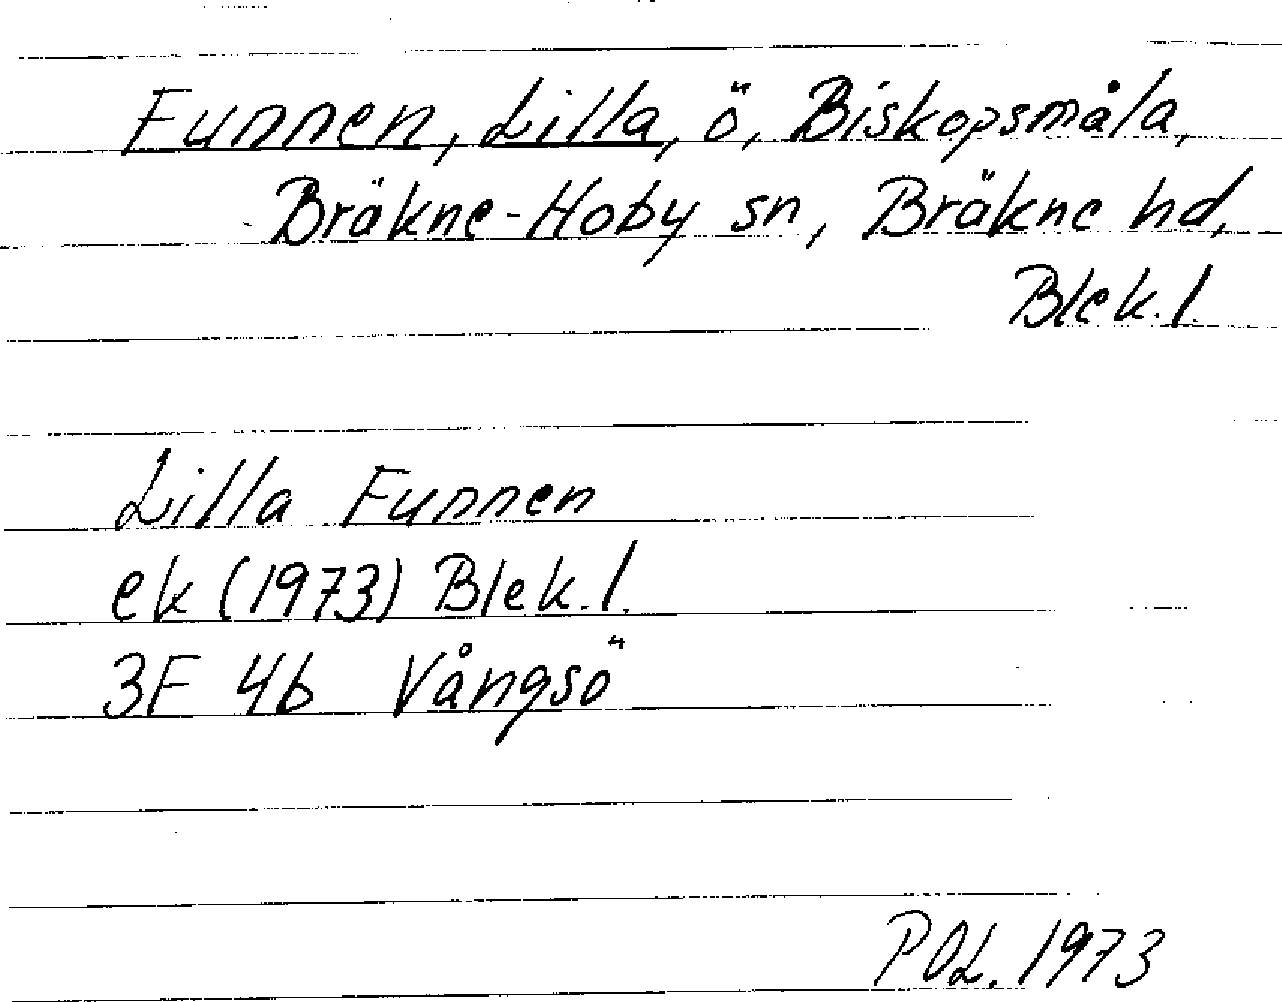 Funnen, Lilla, ö, Biskopsmåla,
Bräkne-Hoby sn, Bräkne hd,
Blek.l.
Lilla Funnen
ek (1973) Blek.l.
3F 4b Vångsö
POL. 1973